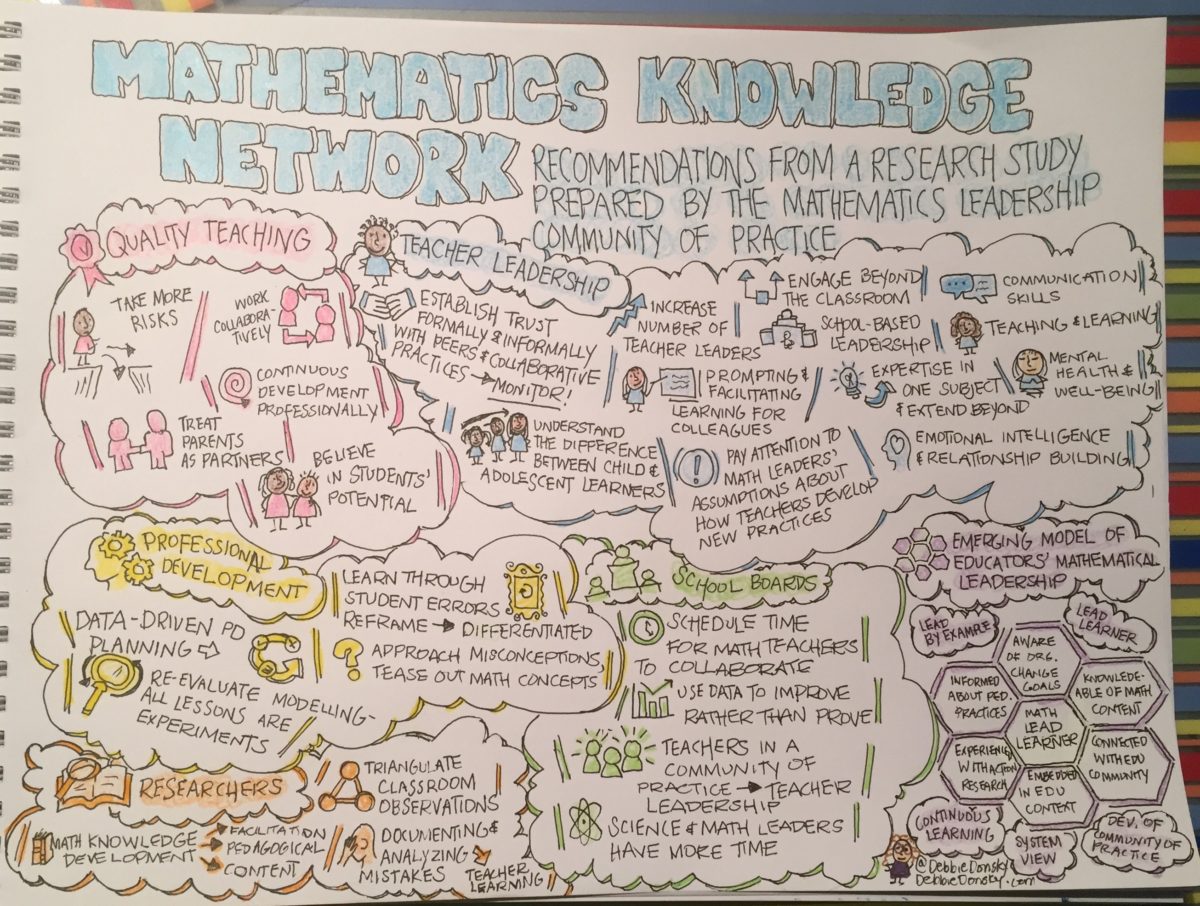 MATHEMATICS KNOWLEDGE
NETWORK
RECOMMENDATIONS FROM A RESEARCH STUDY
PREPARED BY THE MATHEMATICS LEADERSHIP
COMMUNITY OF PRACTICE
QUALITY TEACHING
TAKE MORE
RISKS
WORK
COLLABORA-
TIVELY
CONTINUOUS
DEVELOPMENT
PROFESSIONALLY
TREAT
PARENTS
AS PARTNERS
BELIEVE
IN STUDENTS'
POTENTIAL
TEACHER LEADERSHIP
ESTABLISH TRUST
FORMALLY & INFORMALLY
WITH PEERS & COLLABORATIVE
PRACTICES → MONITOR!
UNDERSTAND
THE DIFFERENCE
BETWEEN CHILD &
ADOLESCENT LEARNERS
INCREASE
NUMBER OF
TEACHER LEADERS
PROMPTING &
FACILITATING
LEARNING FOR
COLLEAGUES
PAY ATTENTION TO
MATH LEADERS'
ASSUMPTIONS ABOUT
HOW TEACHERS DEVELOP
NEW PRACTICES
ENGAGE BEYOND
THE CLASSROOM
SCHOOL-BASED
LEADERSHIP
EXPERTISE IN
ONE SUBJECT
& EXTEND BEYOND
COMMUNICATION
SKILLS
TEACHING & LEARNING
MENTAL
HEALTH &
WELL-BEING
EMOTIONAL INTELLIGENCE
& RELATIONSHIP BUILDING
PROFESSIONAL
DEVELOPMENT
DATA-DRIVEN PD
PLANNING ⇨
RE-EVALUATE MODELLING-
ALL LESSONS ARE
EXPERIMENTS
LEARN THROUGH
STUDENT ERRORS
REFRAME → DIFFERENTIATED
? APPROACH MISCONCEPTIONS,
TEASE OUT MATH CONCEPTS
SCHOOL BOARDS
SCHEDULE TIME
FOR MATH TEACHERS
TO COLLABORATE
USE DATA TO IMPROVE
RATHER THAN PROVE
TEACHERS IN A
COMMUNITY OF
PRACTICE → TEACHER
LEADERSHIP
SCIENCE & MATH LEADERS
HAVE MORE TIME
RESEARCHERS
MATH KNOWLEDGE
DEVELOPMENT
FACILITATION
PEDAGOGICAL
CONTENT
TRIANGULATE
CLASSROOM
OBSERVATIONS
DOCUMENTING &
ANALYZING
MISTAKES
TEACHER
LEARNING
EMERGING MODEL OF
EDUCATORS' MATHEMATICAL
LEADERSHIP
LEAD
BY EXAMPLE
LEAD
LEARNER
AWARE
OF ORG.
CHANGE
GOALS
INFORMED
ABOUT PED.
PRACTICES
KNOWLEDE-
ABLE OF MATH
CONTENT
MATH
LEAD
LEARNER
EXPERIENCE
WITH ACTION
RESEARCH
CONNECTED
WITH EDU
COMMUNITY
EMBEDDED
IN EDU
CONTEXT
CONTINUOUS
LEARNING
SYSTEM
VIEW
DEV. OF
COMMUNITY OF
PRACTICE
@DebbieDonsky
DebbieDonsky.com